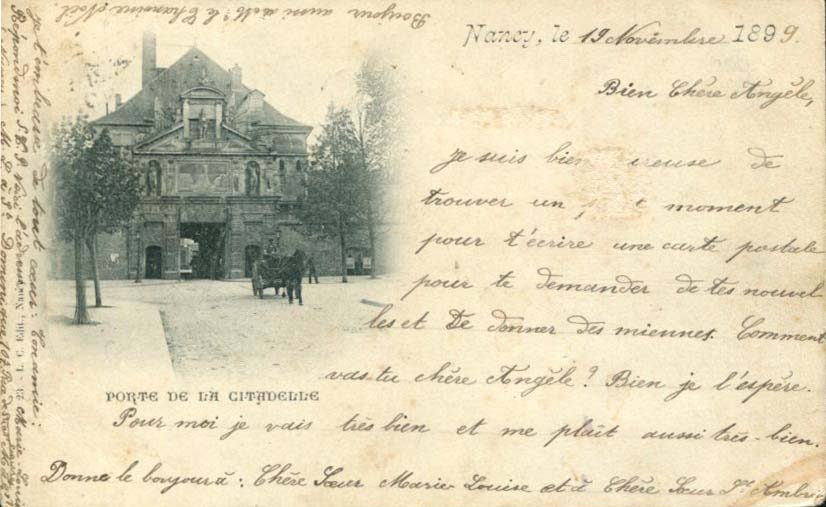 Nancy, le 19 Novembre 1899.
Bien Chère Angèle,
Je suis bien reuse de
trouver un p t moment
pour t'écrire une carte postale
pour te demander de tes nouvel
les et De donner des miennes. Comment
vas tu chère Angèle? Bien je l'espère.
Pour moi je vais très bien et me plaît aussi très-bien.
Donne le bonjour à: Chère Sœur Marie Louise et à Chère Sœur St Ambroi
PORTE DE LA CITADELLE
Je t'embrasse de tout cœur: Ton amie:
Marie-Louis
Réponds moi S.V.P. Voici l'adresse:
Dominique 107
Bonjour aussi à Mr le Chanoine Noël.